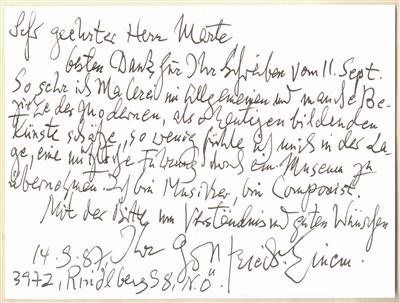 Sehr geehrter Herr Marte
besten Dank für Ihr Schreiben vom 11. Sept.
So sehr ich Malerei im Allgemeinen und manche Be-
zirke des Modernen, als heutigen bildenden
Künste schätze, so wenig fühle ich mich in der La-
ge, eine Führung durch ein Museum zu
übernehmen. Ich bin Musiker, bin Componist.
Mit der Bitte um Verständnis und guten Wünschen
14.9.87, Ihr Gottfried von Einem.
3972, Rindlberg 38, NÖ.